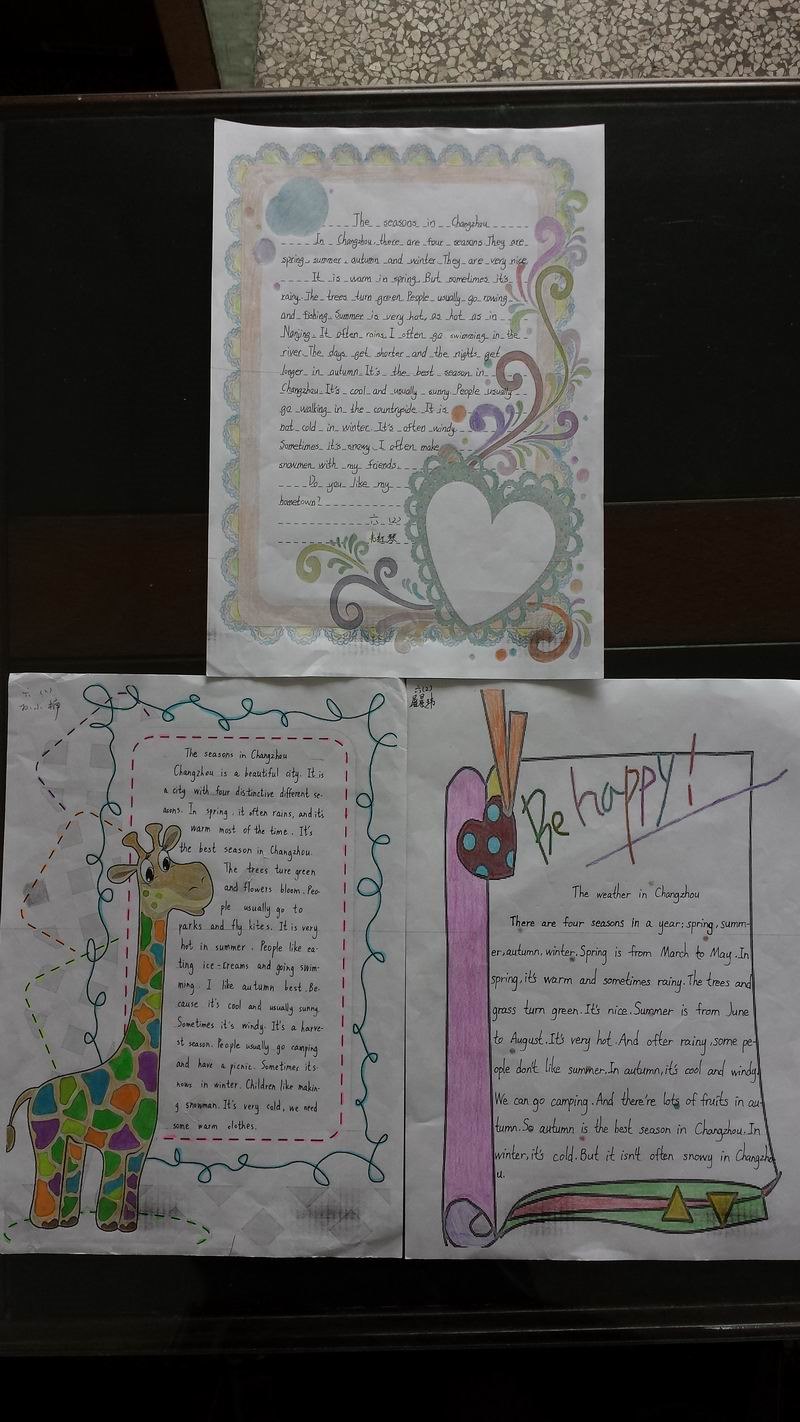 The seasons in Changzhou
In Changzhou, there are four seasons. They are
spring, summer, autumn and winter. They are very nice.
It is warm in spring. But sometimes it's
rainy. The trees turn green. People usually go rowing
and fishing. Summer is very hot, as hot as in
Nanjing. It often rains. I often go swimming in the
river. The days get shorter and the nights get
longer in autumn. It's the best season in
Changzhou. It's cool and usually sunny. People usually
go walking in the countryside. It is
not cold in winter. It's often windy.
Sometimes it's snowy. I often make
snowmen with my friends.
Do you like my
hometown?
六 (2)
The seasons in Changzhou
Changzhou is a beautiful city. It is
a city with four distinctive different se-
asons. In spring, it often rains, and it's
warm most of the time. It's
the best season in Changzhou.
The trees ture green
and flowers bloom. Peo-
ple usually go to
parks and fly kites. It is very
hot in summer. People like ea-
ting ice-creams and going swim-
ming. I like autumn best. Be-
cause it's cool and usually sunny.
Sometimes it's windy. It's a harve-
st season. People usually go camping
and have a picnic. Sometimes its
nows in winter. Children like makin-
g snowman. It's very cold, we need
some warm clothes.
六(2)
Be happy!
The weather in Changzhou
There are four seasons in a year: spring, summ-
er, autumn, winter. Spring is from March to May. In
spring, it's warm and sometimes rainy. The trees and
grass turn green. It's nice. Summer is from June
to August. It's very hot. And ofter rainy, some pe-
ople don't like summer. In autumn, it's cool and windy.
We can go camping. And there're lots of fruits in au-
tumn. So autumn is the best season in Changzhou. In
winter, it's cold. But it isn't often snowy in Changzho
u.